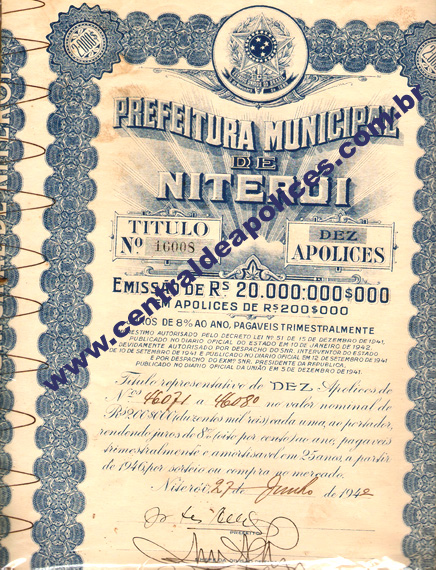 PREFEITURA MUNICIPAL
DE
NITEROI
TITULO
Nº 16008
DEZ
APOLICES
EMISSÃO DE RS 20.000:000$000
EM APOLICES DE RS 200$000
JUROS DE 8% AO ANO, PAGAVEIS TRIMESTRALMENTE
EMPRESTIMO AUTORISADO PELO DECRETO LEI Nº 51 DE 15 DE DEZEMBRO DE 1941,
PUBLICADO NO DIARIO OFICIAL DO ESTADO EM 10 DE JANEIRO DE 1942,
DEVIDAMENTE AUTORISADO POR DESPACHO DO SNR. INTERVENTOR DO ESTADO
DE 10 DE SETEMBRO DE 1941 E PUBLICADO NO DIARIO OFICIAL EM 12 DE SETEMBRO DE 1941
E POR DESPACHO DO EXMº SNR. PRESIDENTE DA REPUBLICA,
PUBLICADO NO DIARIO OFICIAL DA UNIÃO EM 5 DE DEZEMBRO DE 1941.
Titulo representativo de DEZ Apolices de
Nos 46071 a 46080 no valor nominal de
Rs 200$000 (duzentos mil reis) cada uma, ao portador,
rendendo juros de 8% (oito por cento) ao ano, pagaveis
trimestralmente e amortisavel em 25 anos, á partir
de 1946, por sorteio ou compra no mercado.
Niterói, 27 de Junho de 1942
PREFEITO
www.centraldeapolices.com.br